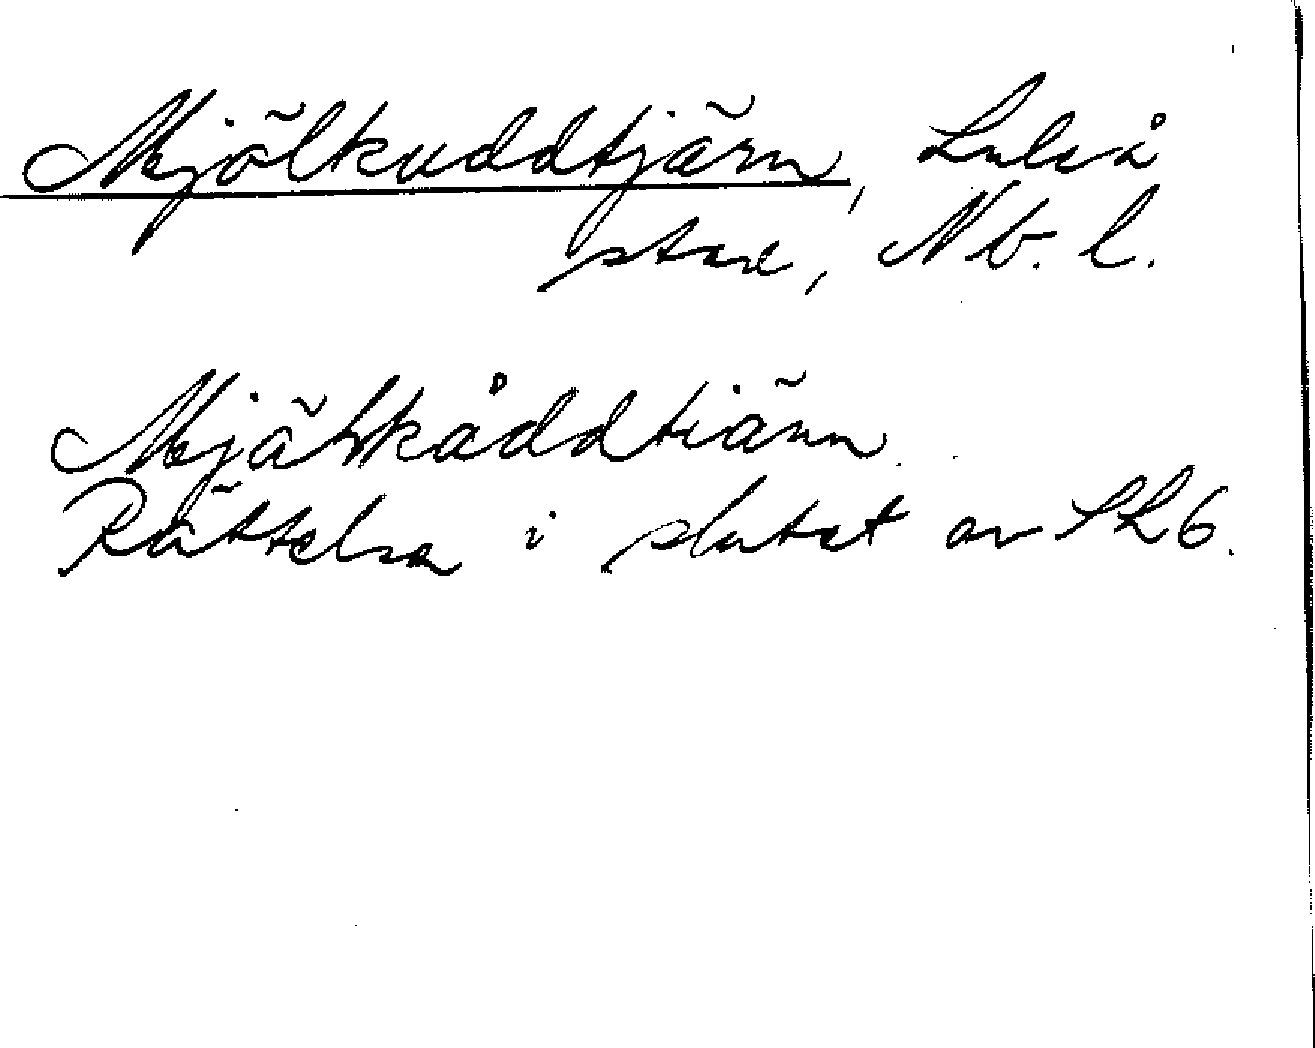 Mjölkuddtjärn, Luleå
stad, Nb. l.
Mjäłkåddtiänn
Rättelse i slutet av SL6.